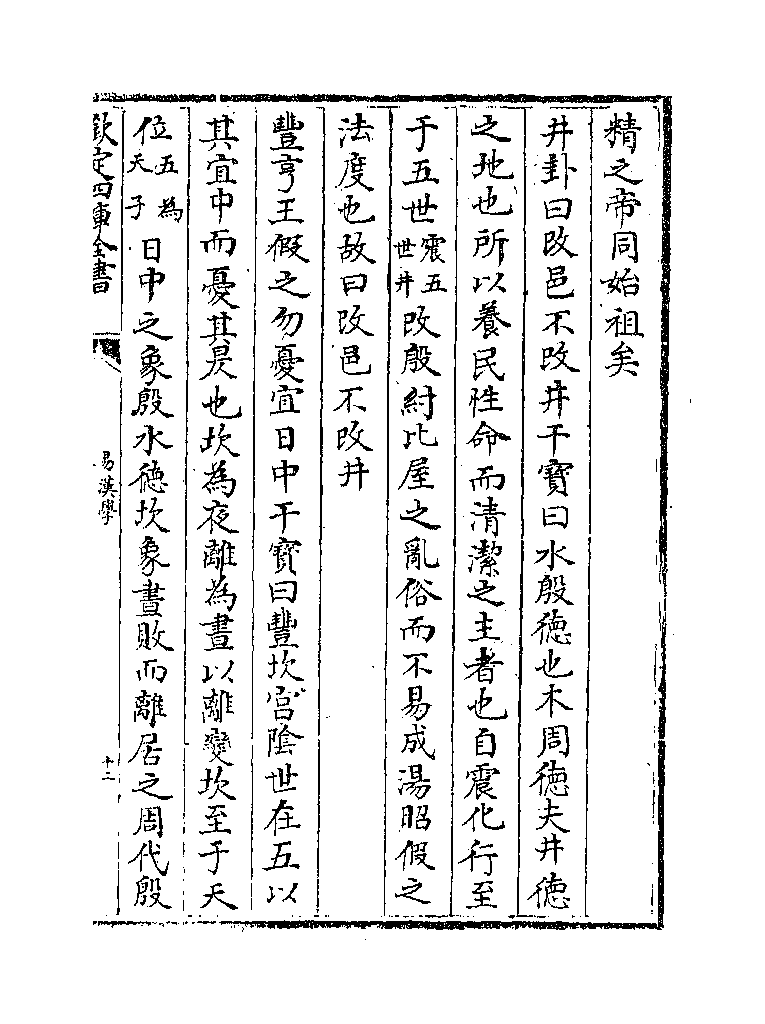 精之帝同始祖矣
井卦曰改邑不改井干寶曰水殷德也木周德夫井德
之地也所以養民性命而清潔之主者也自震化行至
于五世震五世井改殷紂比屋之亂俗而不易成湯昭假之
法度也故曰改邑不改井
豐亨王假之勿憂宜日中干寶曰豐坎宫隂世在五以
其宜中而憂其昃也坎為夜離為晝以離變坎至于天
位五為天子日中之象殷水德坎象晝敗而離居之周代殷
欽定四庫全書
易漢學
十二